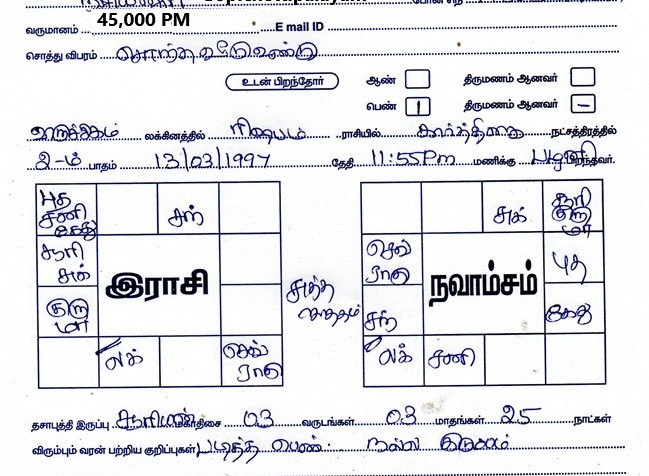 45,000 PM
வருமானம் E mail ID
சொத்து விபரம் சொந்த வீடு உண்டு
உடன் பிறந்தோர் ஆண் திருமணம் ஆனவர்
பெண் 1 திருமணம் ஆனவர் –
லக்கினத்தில் ரிஷபம் ராசியில் கார்த்திகை நட்சத்திரத்தில்
2-ம் பாதம் 13/03/1997 தேதி 11:55 Pm மணிக்கு பழனி பிறந்தவர்.
புத சனி கேது சந் சுக் சூரி குரு மா
சூரி சுக் இராசி செவ் ராகு நவாம்சம் புத
குரு மா சுத்த சந் கேது
லக் செவ் ராகு லக் சனி
தசாபுத்தி இருப்பு சூரியன் மகாதிசை 03 வருடங்கள் 03 மாதங்கள் 25 நாட்கள்
விரும்பும் வரன் பற்றிய குறிப்புகள் படித்த பெண். நல்ல இடம்